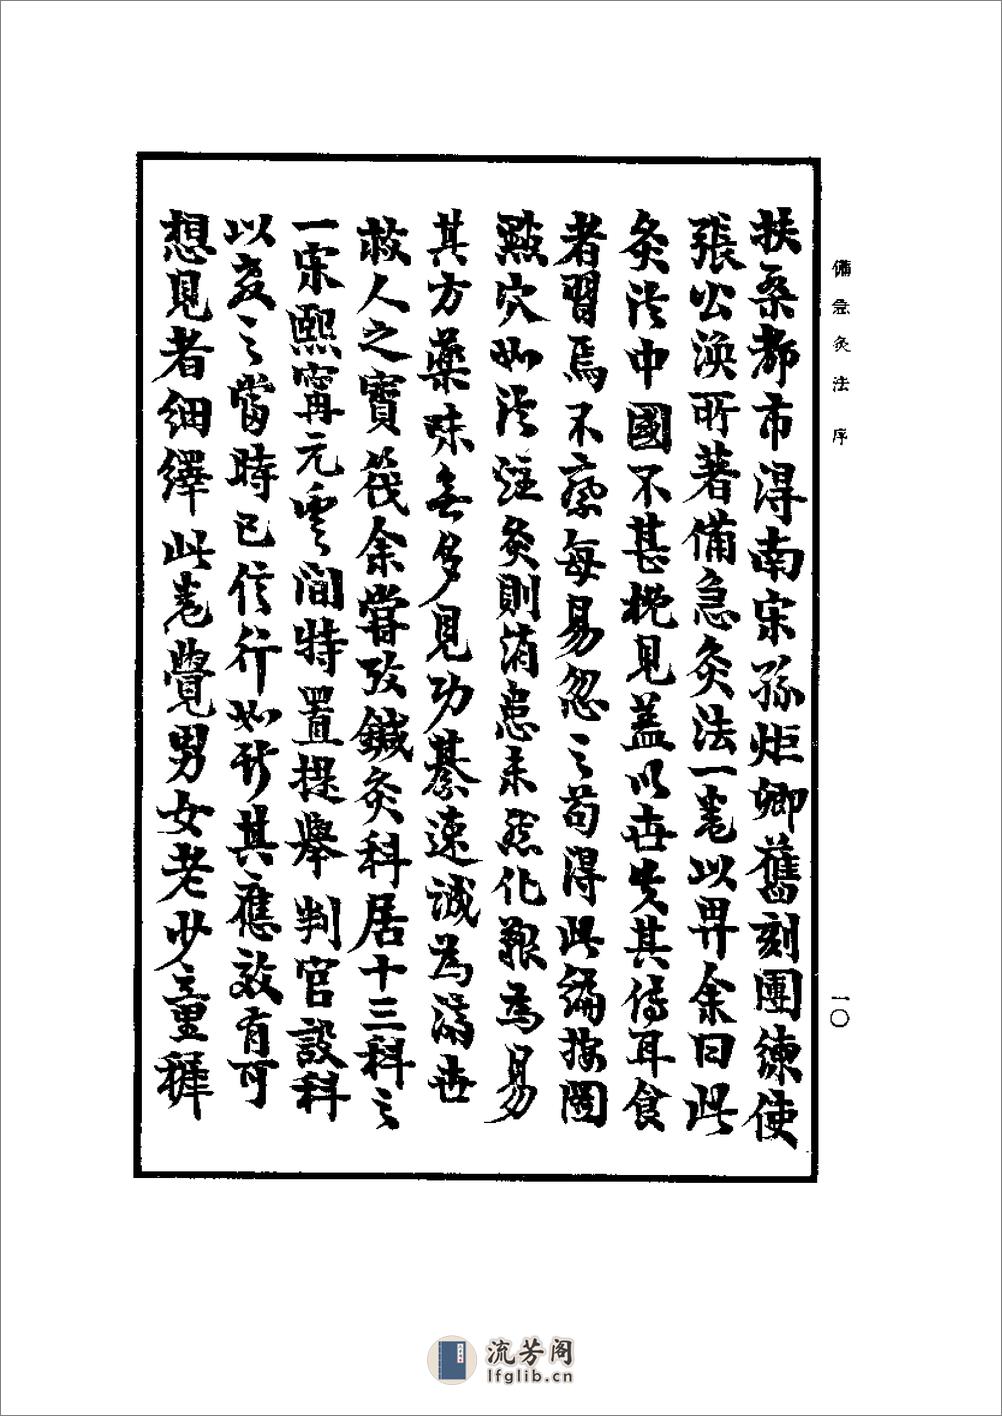 備急灸法 序
一〇
扶桑都市得南宋孫炬卿舊刻團練使
張公渙所著備急灸法一卷以畀余曰此
灸法中國不甚概見蓋以世失其傳耳食
者習焉不察每易忽之苟得此編按圖
點穴如法注灸則消患未然化艱為易
其方藥味無多見功綦速誠為濟世
救人之寶筏余嘗攷鍼灸科居十三科之
一宋熙甯元豊間特置提舉判官設科
以教之當時已信行如斯其應效有可
想見者細繹此卷覺男女老少童穉
流芳阁
lfglib.cn